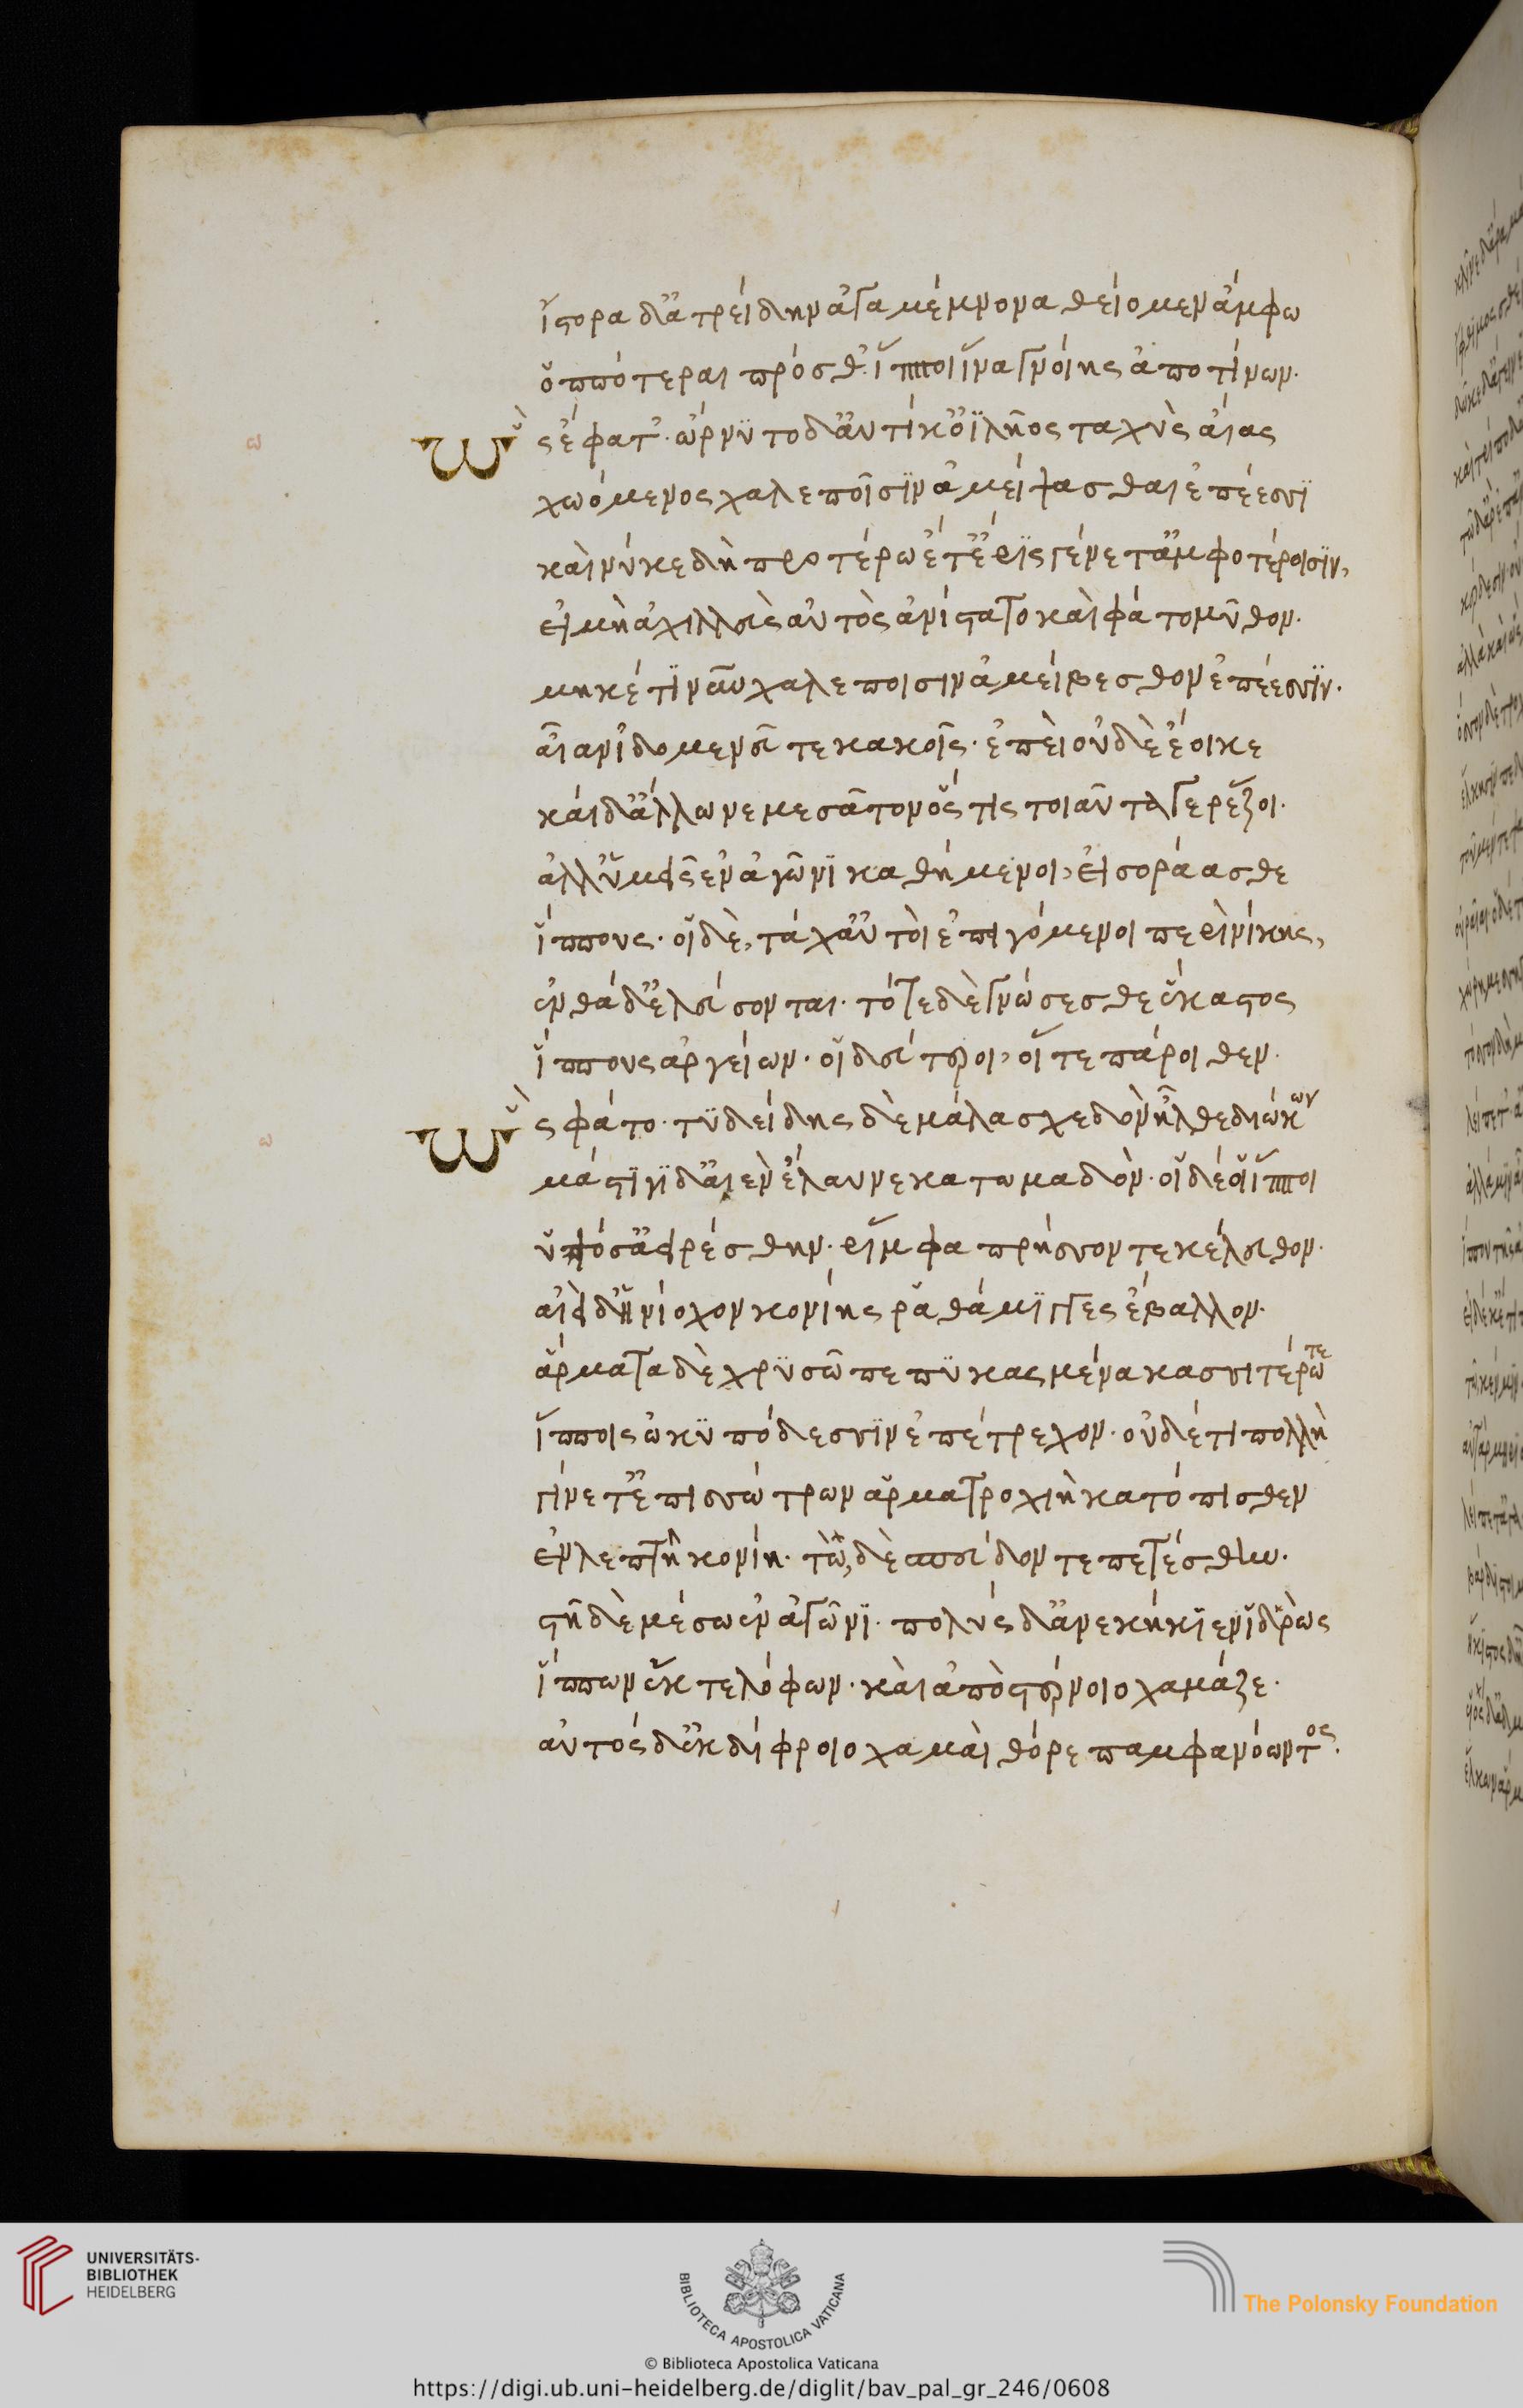 ἵστορα δ' ἀτρείδην ἀγαμέμνονα θείομεν ἄμφω
ὁππότεραι πρόσθ' ἵπποι ἵνα γνοίης ἀποτίνων.
Ὣς ἔφατ'. ὤρνϋτο δ' αὐτίκ' ὀϊλῆος ταχὺς αἴας
χωόμενος χαλεποῖσϊν ἀμείψασθαι ἐπέεσσϊ
καὶ νύ κε δὴ προτέρω ἔτ' ἔρϊς γένετ' ἀμφοτέροισϊν,
εἰ μὴ ἀχιλλεὺς αὐτὸς ἀνίστατο καὶ φάτο μῦθον.
μηκέτϊ νῦν χαλεποισιν ἀμείβεσθον ἐπέεσσϊν.
αἶαν ἰδομενεῦ τε κακοῖς. ἐπεὶ οὐδὲ ἔοικε
καὶ δ' ἄλλω νεμεσᾶτον ὅς τις τοιαῦτά γε ῥέζοι.
ἀλλ' ὑμεῖς ἐν ἀγῶνϊ καθήμενοι, εἰσοράασθε
ἵππους. οἱ δὲ, τάχ' αὐτοὶ ἐπιγόμενοι περὶ νίκης,
ἐνθάδ' ἐλεύσονται. τότε δὲ γνώσεσθε ἕκαστος
ἵππους ἀργείων. οἳ δεύτεροι, οἵ τε πάροιθεν.
Ὣς φάτο. τϋδείδης δὲ μάλα σχεδὸν ἦλθε διώκων
μάστϊγϊ δ' αἰὲν ἔλαυνε κατωμαδὸν. οἱ δέ οἱ ἵπποι
ὑψόσ' ἀειρέσθην. ῥίμφα πρήσσοντε κέλευθον.
αἰεὶ δ' ἡνίοχον κονίης ῥαθάμϊγγες ἔβαλλον.
ἅρματα δὲ χρϋσῶ πεπϋκασμένα κασσιτέρω τε
ἵπποις ὠκϋπόδεσσϊν ἐπέτρεχον. οὐδέ τι πολλὴ
γίνετ' ἐπισσώτρων ἁρματροχιὴ κατόπισθεν
ἐν λεπτῆ κονίη. τὼ, δὲ σπεύδοντε πετέσθην.
στῆ δὲ μέσω ἐν ἀγῶνϊ. πολὺς δ' ἀνεκήκϊεν ἱδρὼς
ἵππων ἔκ τε λόφων. καὶ ἀπὸ στέρνοιο χαμάζε.
αὐτὸς δ' ἐκ δίφροιο χαμαὶ θόρε παμφανόωντος.
ω
ω
UNIVERSITÄTS-
BIBLIOTHEK
HEIDELBERG
BIBLIOTECA APOSTOLICA VATICANA
The Polonsky Foundation
© Biblioteca Apostolica Vaticana
https://digi.ub.uni-heidelberg.de/diglit/bav_pal_gr_246/0608